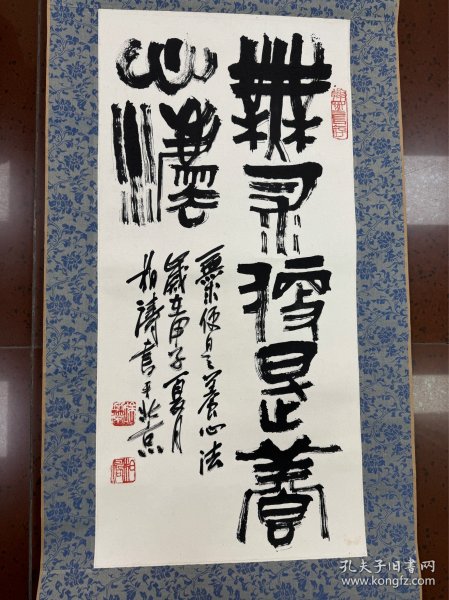 無求便是養
心灋
無求便是養心法
歲在甲子夏月
柏濤書于北京
孔夫子旧书网
www.kongfz.com